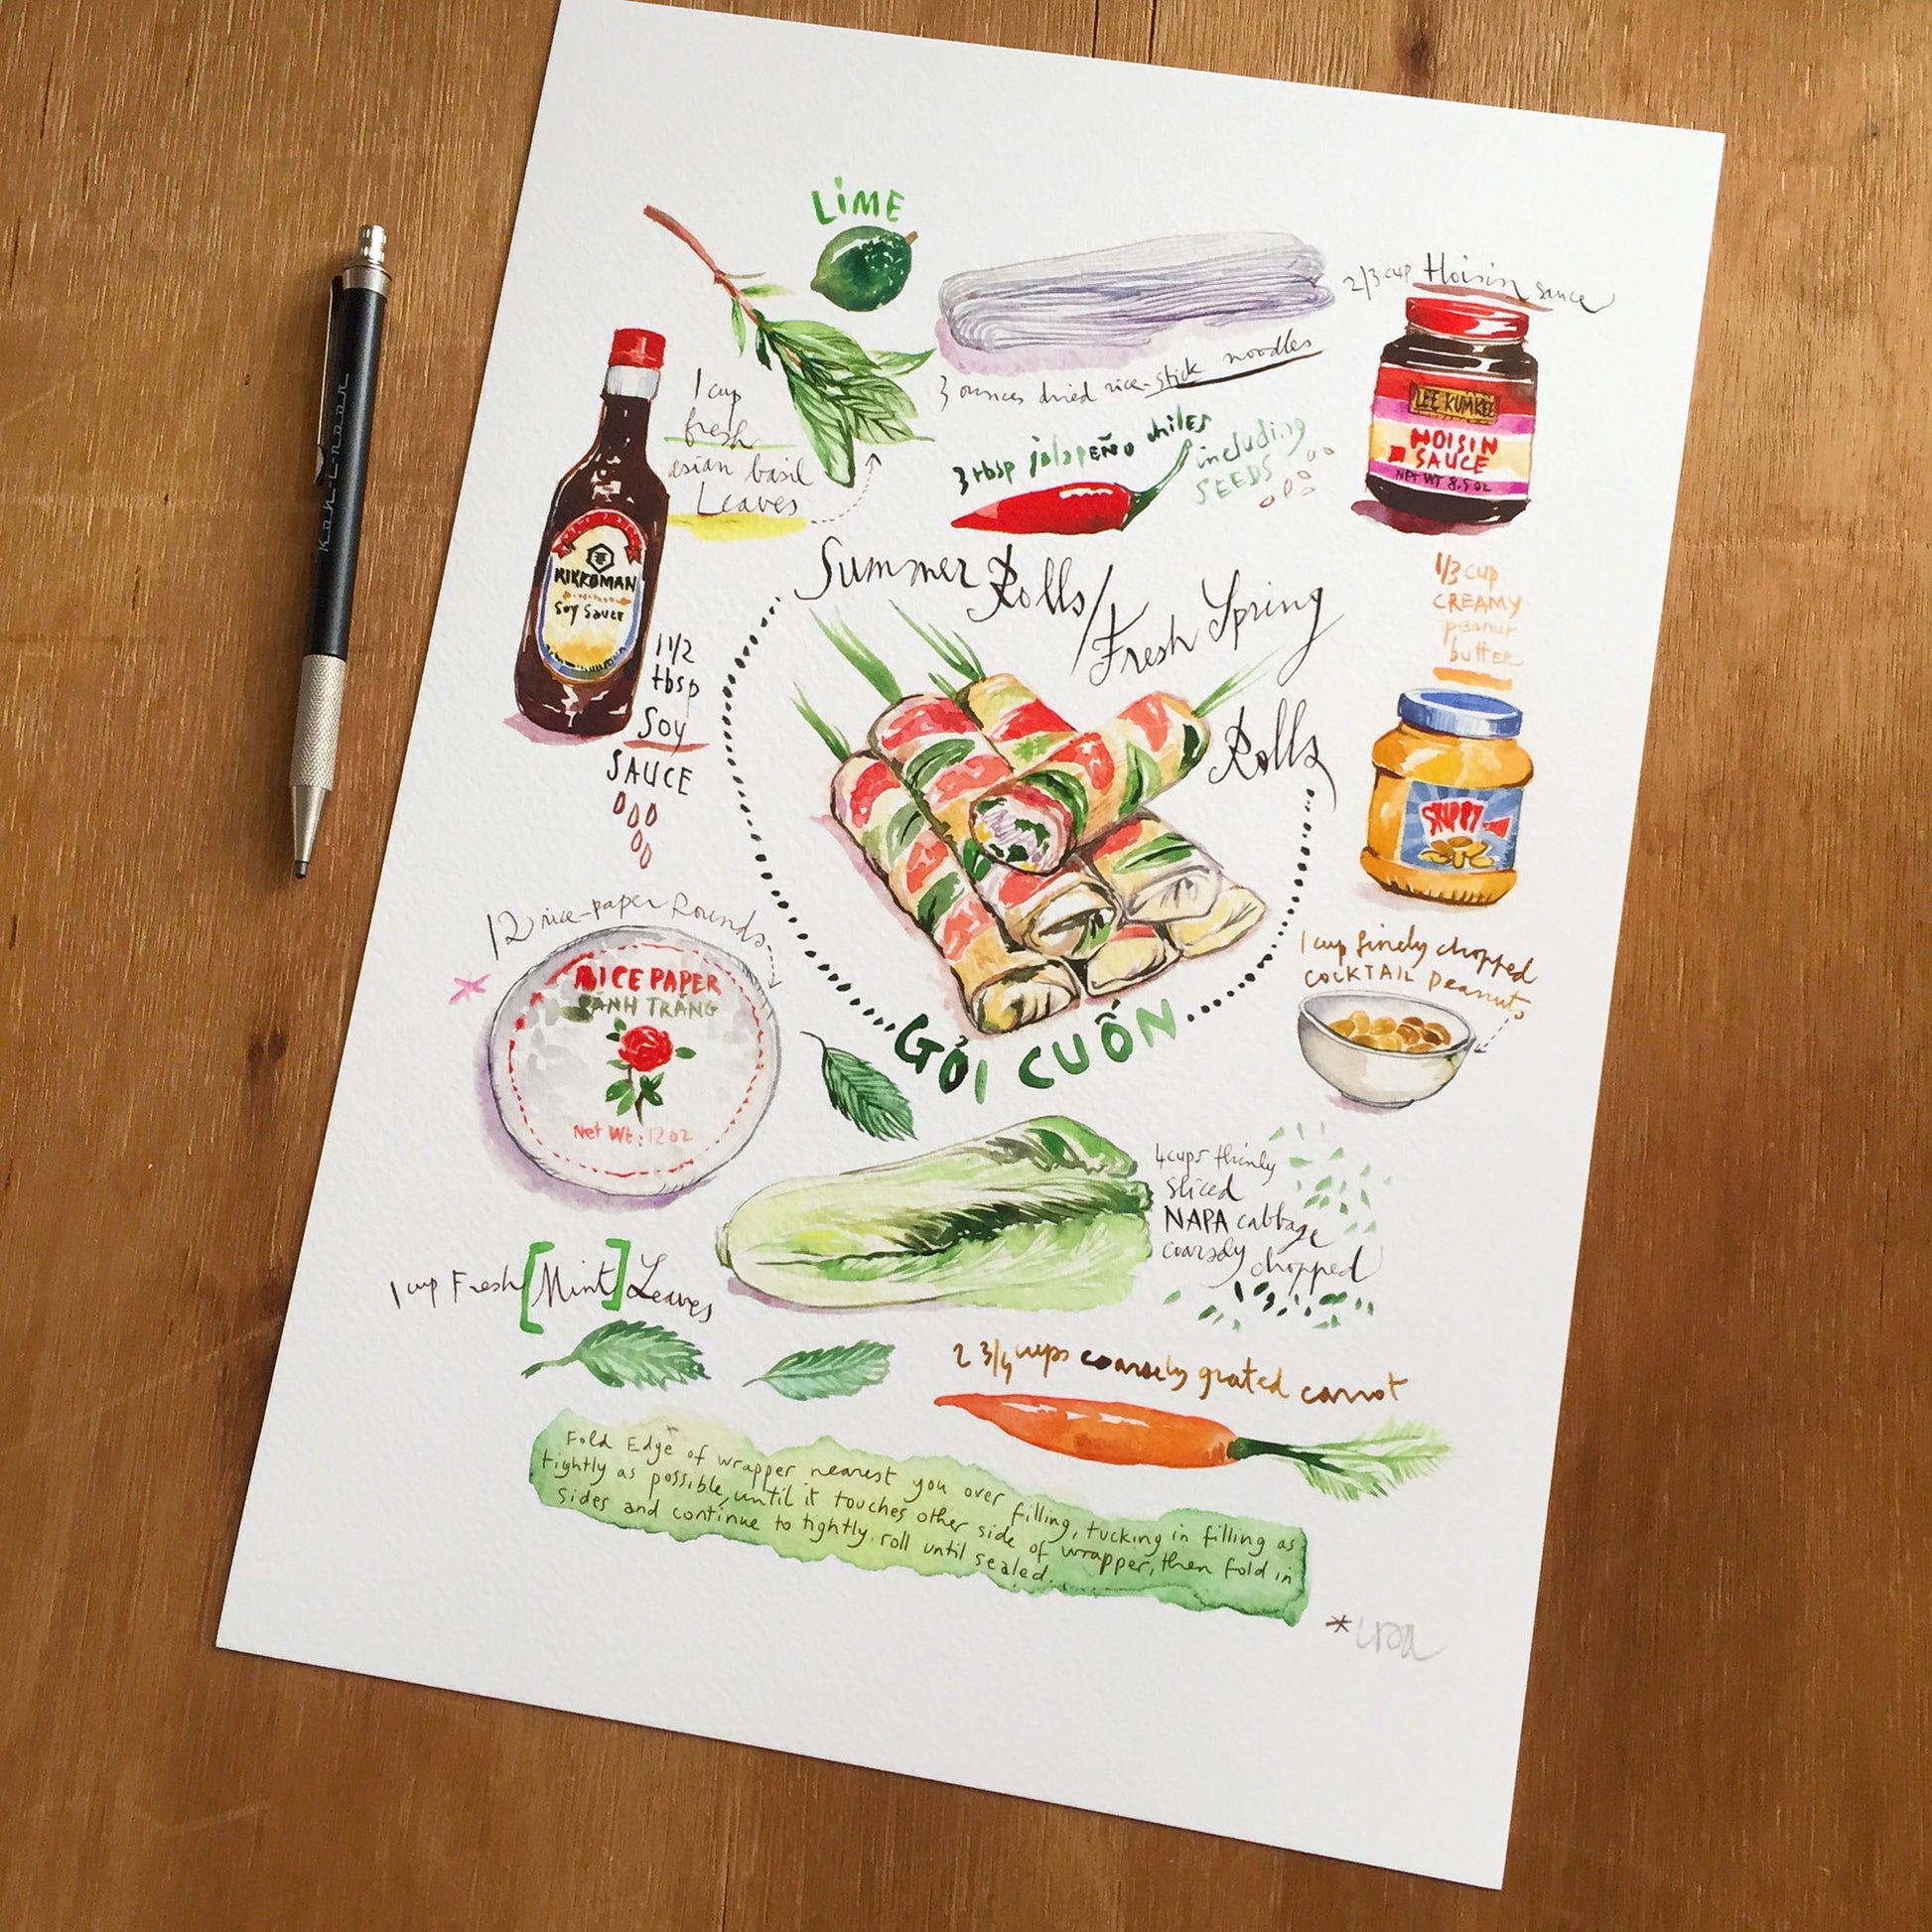 LiME
2/3 cup Hoisin sauce
3 ounces dried rice-stick noodles
1 cup
fresh
asian basil
Leaves
3 tbsp jalapeño chiles
including
SEEDS
LEE KUM KEE
HOISIN
SAUCE
NET WT 8.5 OZ
KIKKOMAN
Soy Sauce
1 1/2
tbsp
Soy
SAUCE
Summer Rolls/
Fresh Spring
Rolls
1/3 cup
CREAMY
peanut
butter
SKIPPY
12 rice-paper Rounds
RICE PAPER
BÁNH TRÁNG
Net Wt: 12 oz
GỎI CUỐN
1 cup finely chopped
COCKTAIL peanuts
4 cups thinly
sliced
NAPA cabbage
coarsely chopped
1 cup Fresh [Mint] Leaves
2 3/4 cups coarsely grated carrot
Fold Edge of wrapper nearest you over filling, tucking in filling as
tightly as possible, until it touches other side of wrapper, then fold in
sides and continue to tightly roll until sealed.......
Koh-i-noor